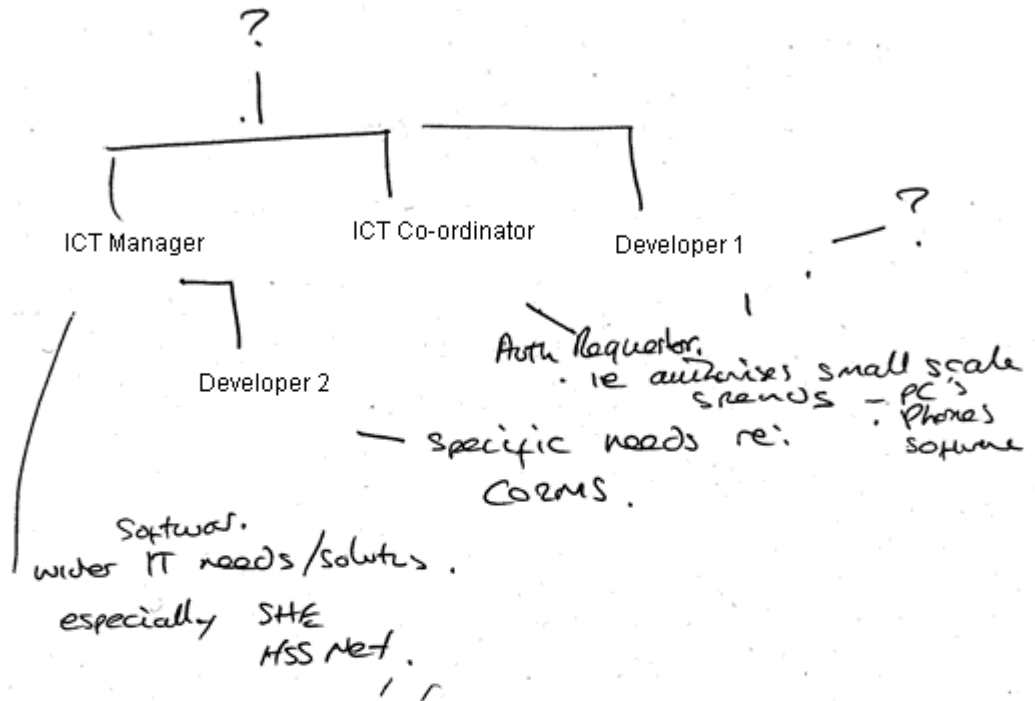 ?
ICT Manager
ICT Co-ordinator
Developer 1
?
Developer 2
Auth Requestor.
ie authorises small scale
spends - PC's
Phones
software
specific needs re:
CORMS.
Softwar.
wider IT needs/solutns.
especially SHE
HSS Net.